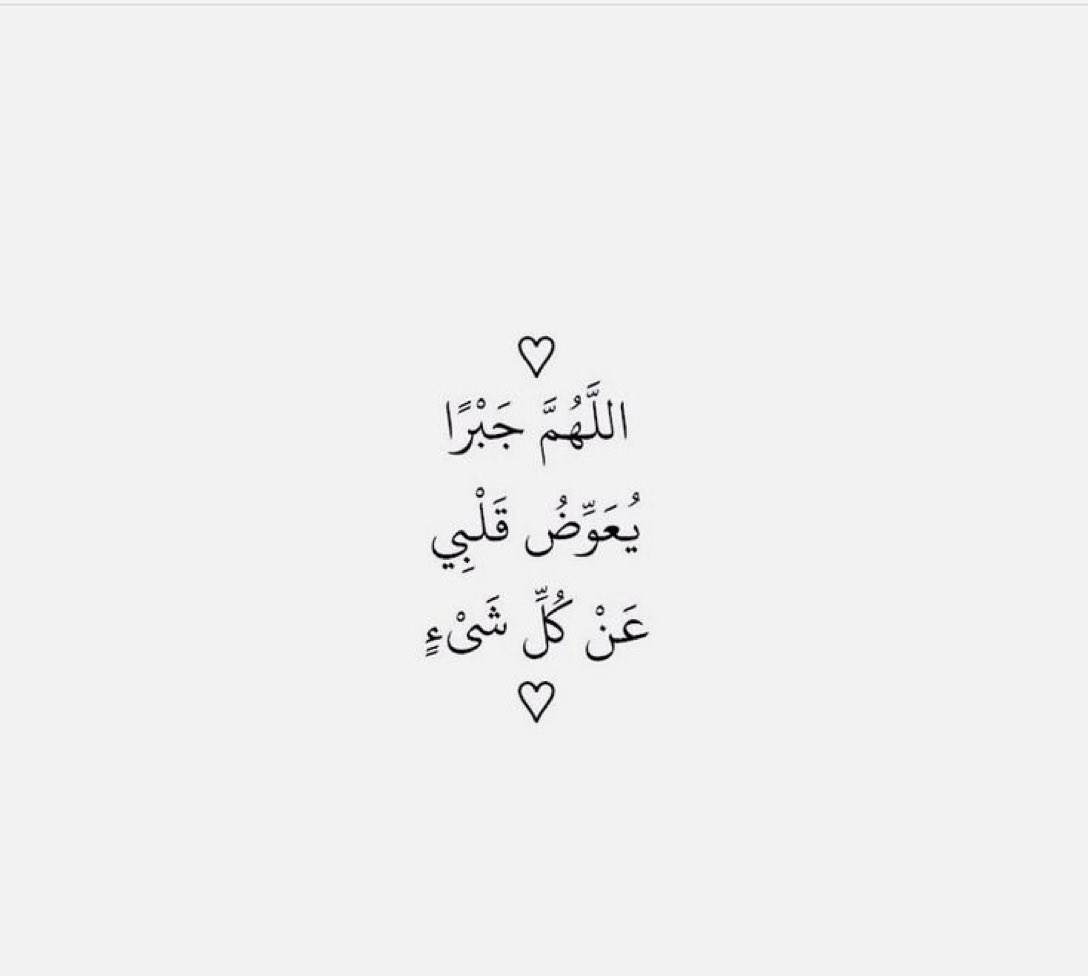 ♡
اللَّهُمَّ جَبْرًا
يُعَوِّضُ قَلْبِي
عَنْ كُلِّ شَىْءٍ
♡